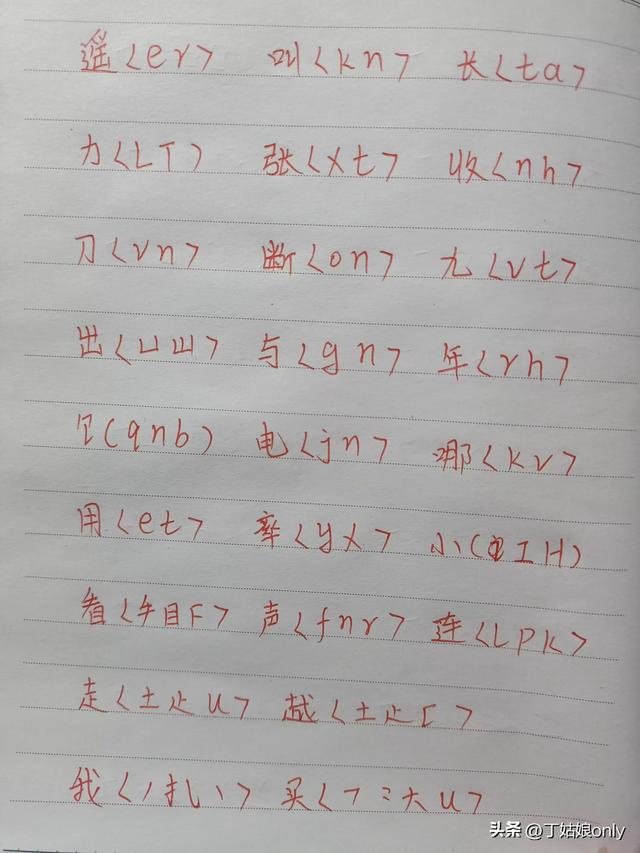 遥〈er〉 叫〈kn〉 长〈ta〉
力〈LT) 张〈xt〉 收〈nh〉
刀〈vn〉 断〈on〉 九〈vt〉
出〈凵山〉 与〈gn〉 年〈rh〉
(qnb) 电〈jn〉 哪〈kv〉
用〈et〉 率〈yx〉 小(IH)
看〈手目F〉 声〈fnr〉 连〈LPK〉
走〈土止u〉 越〈土止〉
我〈丿扎丶〉 买〈乛⺀大u〉
头条 @丁姑娘only